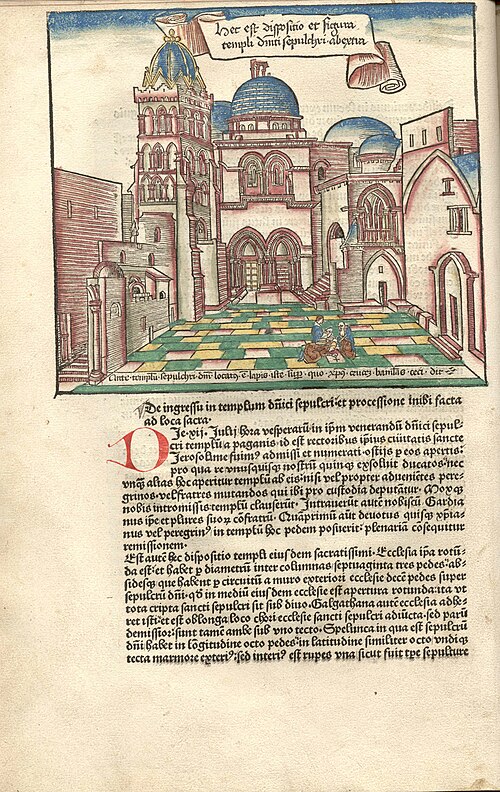 Hec est dispositio et figura
templi dn̄ici sepulchri ab extra
Ante templū sepulchri dn̄i locatꝰ ē lapis iste supꝑ quo xp̄s crucē baiulās ceci dit
De ingressu in templum dn̄ici sepulcri et processione inibi facta
ad loca sacra.
Die xij. Julij hora vesperarū in ip̄m venerandū dn̄ici sepul-
cri templū a paganis id est rectoribus ip̄ius ciuitatis sancte
Jerosolime fuimꝰ admissi et numerati ostijs ꝑ eos apertis:
pro qua re vnusquisqꝫ nostrū quinqꝫ exsoluit ducatos: nec
vnq̄ȝ alias hoc aperitur templū ab eis: nisi vel propter adueniētes pere-
grinos: vel fratres mutandos qui ibi pro custodia deputātur. Moxqꝫ
nobis intromissis templū clauserūt. Intrauerūt autē nobiscū Gardia
nus ip̄e et plures suoꝝ cōfratrū. Quāprimū aūt deuotus quisqꝫ xp̄ia-
nus vel peregrinꝰ in templū hoc pedem posuerit: plenariā cōsequitur
remissionem.
Est autē hec dispositio templi eiusdem sacratissimi. Ecclesia ip̄a rotū-
da est: et habet ꝑ diametrū inter columnas septuaginta tres pedes: ab-
sides qꝫ que habent ꝑ circuitū a muro exteriori ecclesie decē pedes super
sepulcrū dn̄i. qđ in mediū eiusdem ecclesie est apertura rotunda: ita vt
tota cripta sancti sepulcri sit sub diuo. Golgathana autē ecclesia adhe-
ret isti: et est oblonga loco chori ecclesie sancti sepulcri adiūcta: sed parū
demissior: sunt tamē ambe sub vno tecto. Spelunca in qua est sepulcrū
dn̄i habet in lōgitudine octo pedes: in latitudine similiter octo vndiqꝫ
tecta marmore exteriꝰ: sed interiꝰ est rupes vna sicut fuit tp̄e sepulture